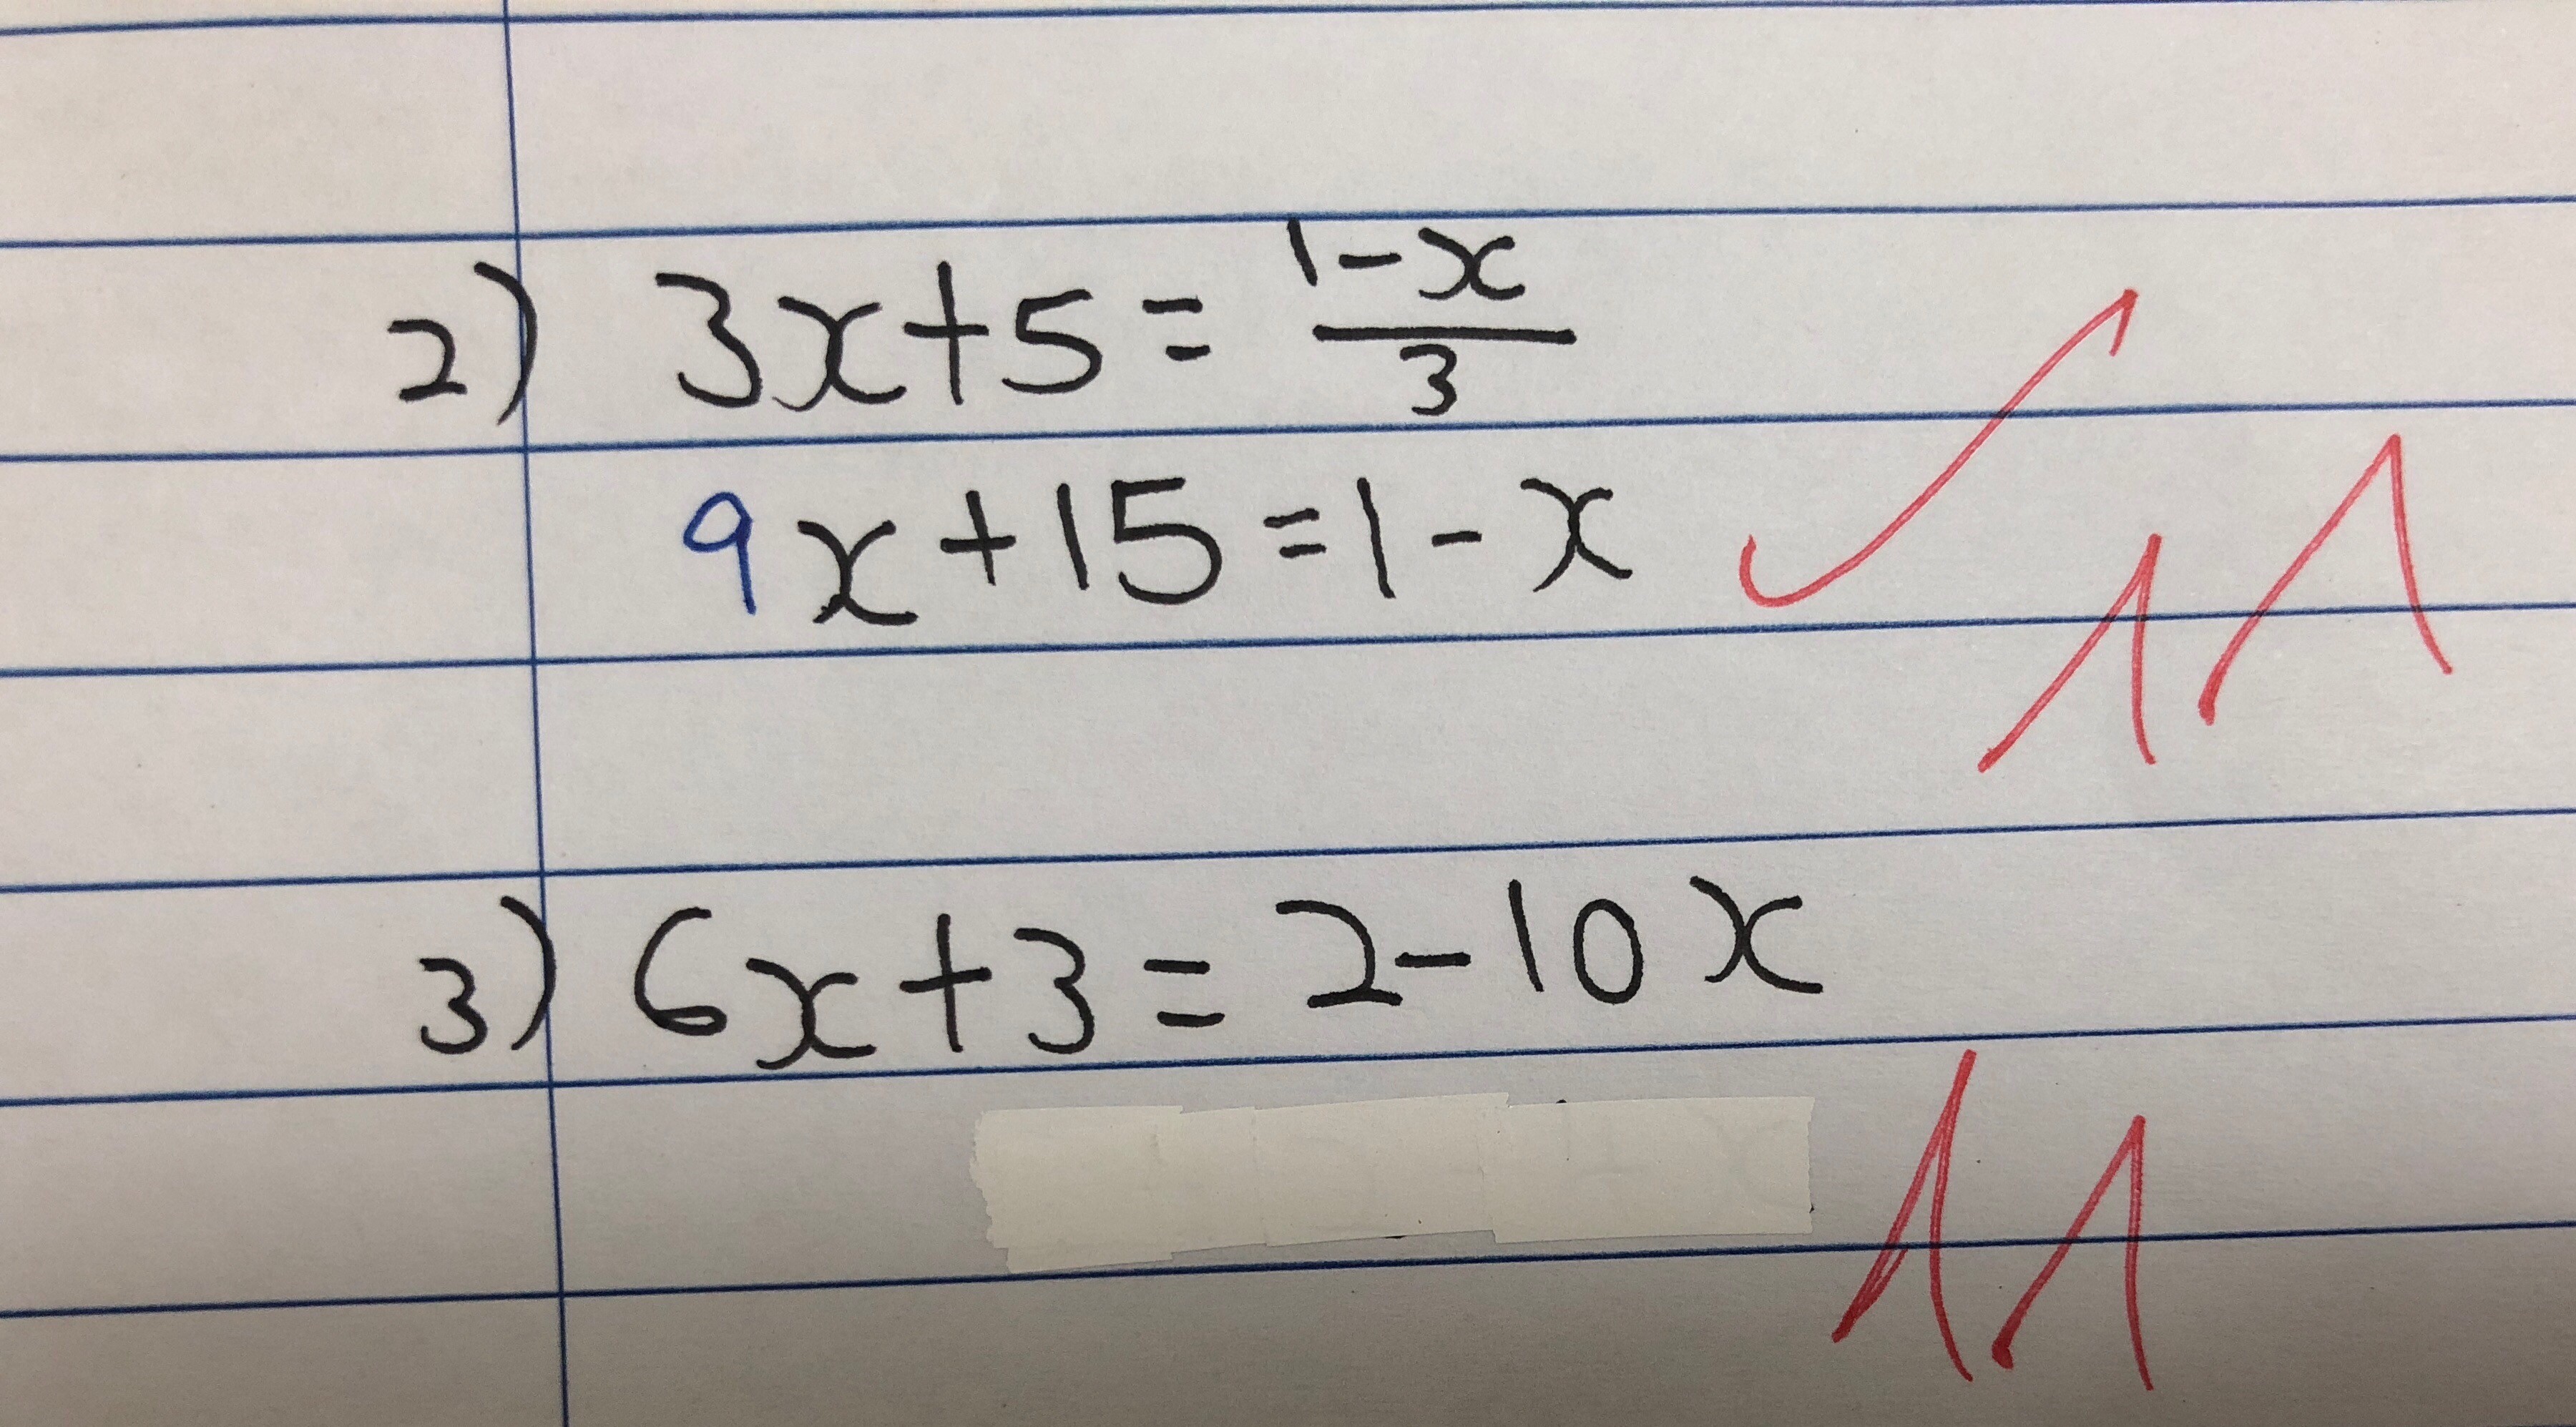 2) 3x+5=\frac{1-x}{3}
9x+15=1-x
3) 6x+3=2-10x